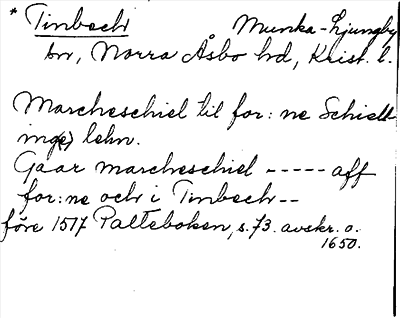 * Tinbech Munka-Ljungby
sn, Norra Åsbo hd, Krist. l.
Marcheschiel til for: ne Schiell
inge) lehn.
Gaar marcheschiel ----- aff
for: ne och i Tinbech --
före 1517 Palteboken, s. 73. avskr. o.
1650.